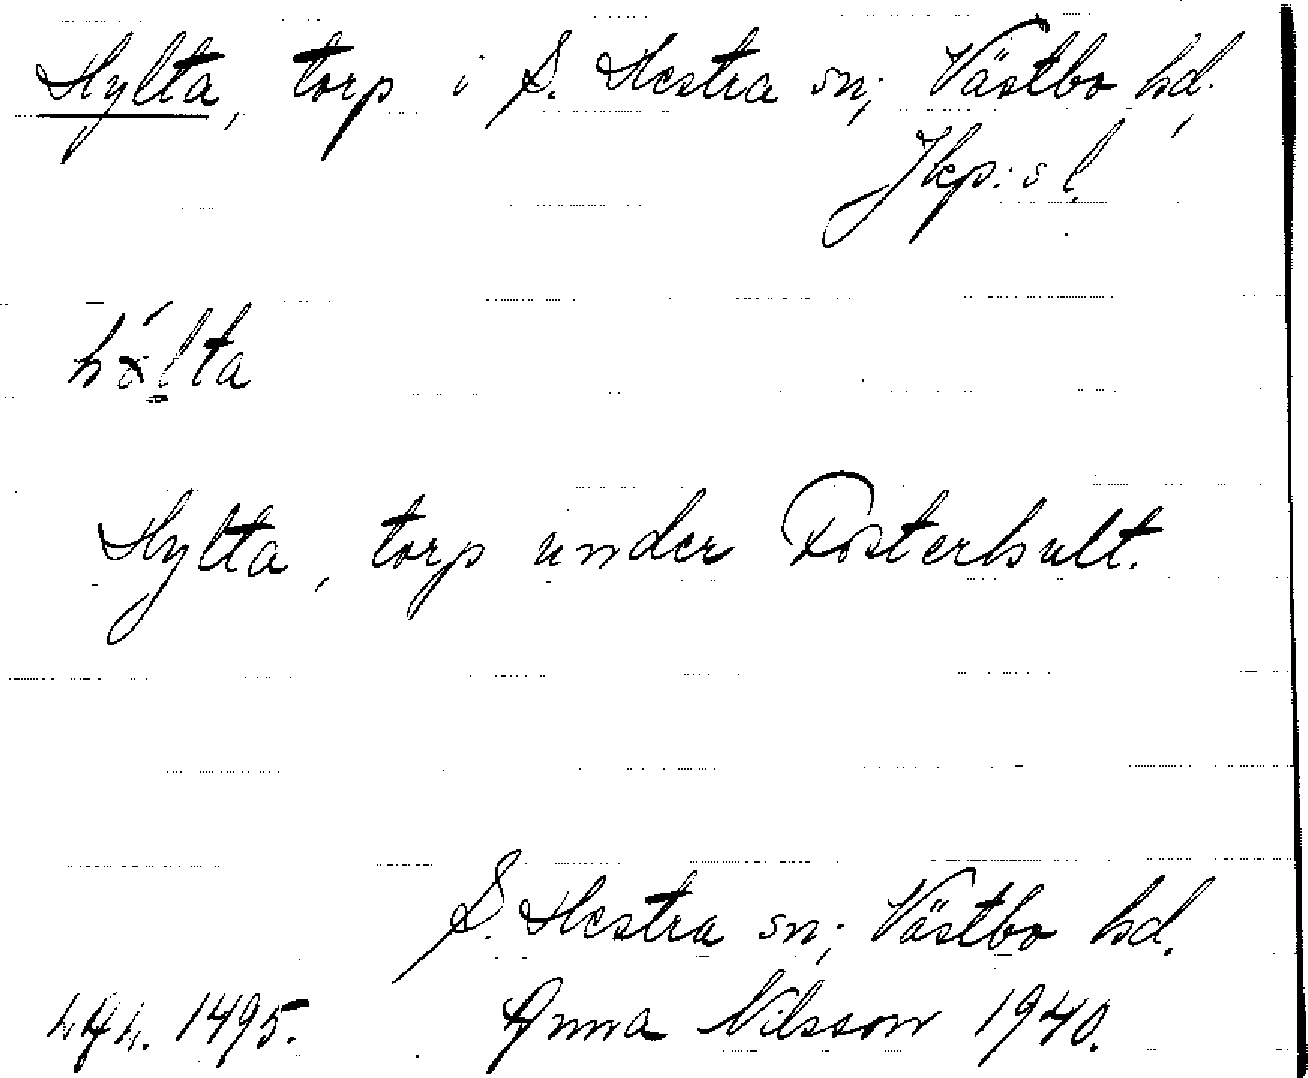 Hylta, torp i S. Hestra sn; Västbo hd,
Jkp:s l.
hálta
Hylta, torp under Fosterhult.
S. Hestra sn; Västbo hd.
1495. Anna Nilsson 1940.